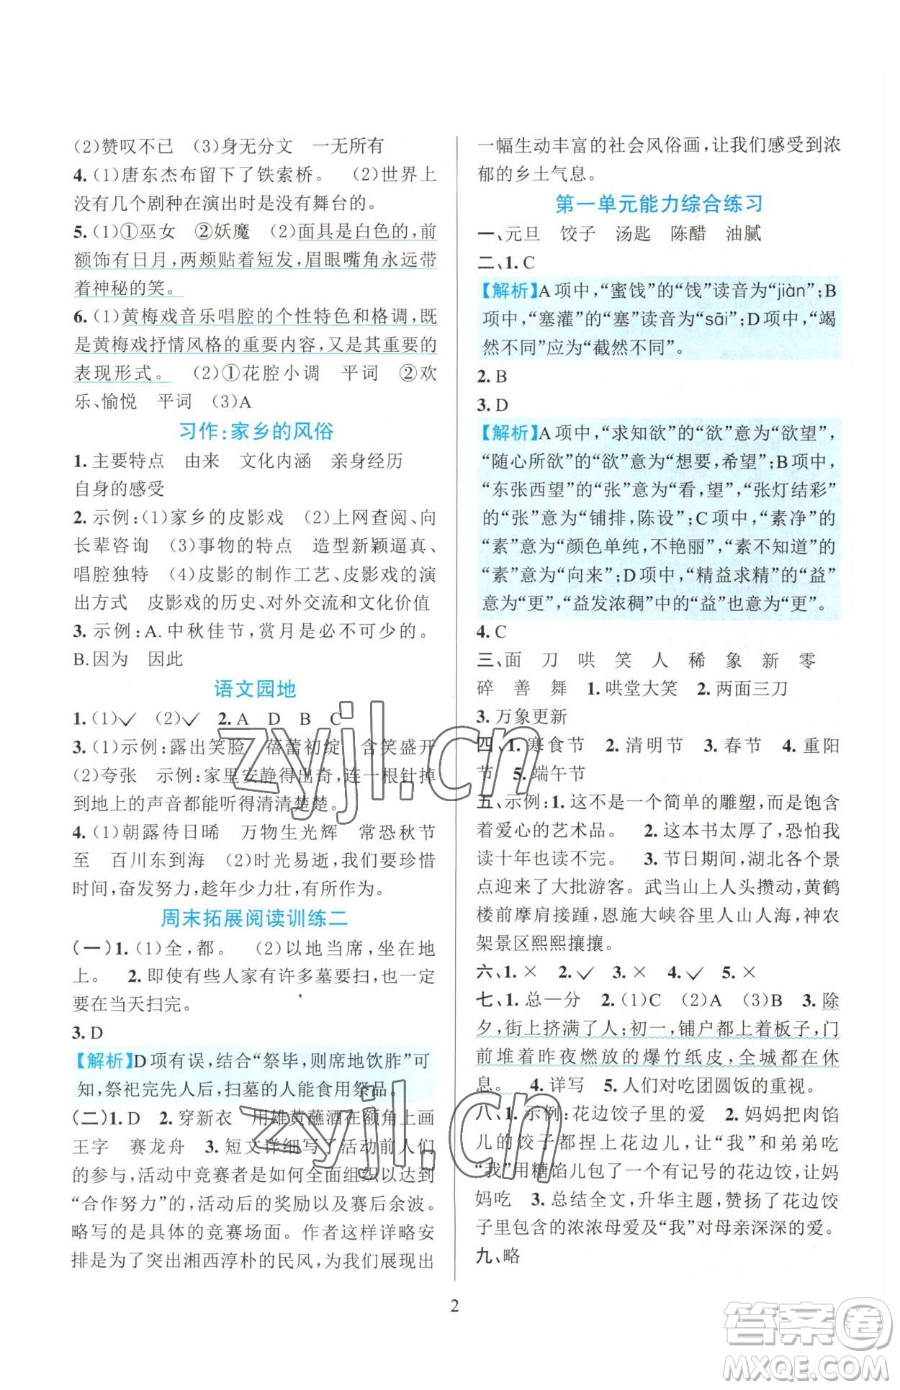 (2)赞叹不已　(3)身无分文　一无所有
4.(1)唐东杰布留下了铁索桥。(2)世界上
没有几个剧种在演出时是没有舞台的。
5.(1)①巫女　②妖魔　(2)面具是白色的,前
额饰有日月,两颊贴着短发,眉眼嘴角永远带
着神秘的笑。
6.(1)黄梅戏音乐唱腔的个性特色和格调,既
是黄梅戏抒情风格的重要内容,又是其重要的
表现形式。　(2)①花腔小调　平词　②欢
乐、愉悦　平词　(3)A
习作:家乡的风俗
1.主要特点　由来　文化内涵　亲身经历
自身的感受
2.示例:(1)家乡的皮影戏　(2)上网查阅、向
长辈咨询　(3)事物的特点　造型新颖逼真、
唱腔独特　(4)皮影的制作工艺、皮影戏的演
出方式　皮影戏的历史、对外交流和文化价值
3.示例:A.中秋佳节,赏月是必不可少的。
B.因为　因此
语文园地
1.(1)✓　(2)✓　2.A　D　B　C
3.(1)示例:露出笑脸　蓓蕾初绽　含笑盛开
(2)夸张　示例:家里安静得出奇,连一根针掉
到地上的声音都能听得清清楚楚。
4.(1)朝露待日晞　万物生光辉　常恐秋节
至　百川东到海　(2)时光易逝,我们要珍惜
时间,奋发努力,趁年少力壮,有所作为。
周末拓展阅读训练二
(一)1.(1)全,都。　(2)以地当席,坐在地
上。　2.即使有些人家有许多墓要扫,也一定
要在当天扫完。
3.D
【解析】D项有误,结合“祭毕,则席地饮胙”可
知,祭祀完先人后,扫墓的人能食用祭品。
(二)1.D　2.穿新衣　用雄黄蘸酒在额角上画
王字　赛龙舟　3.短文详细写了活动前人们
的参与,活动中竞赛者是如何全面组织以达到
“合作努力”的,活动后的奖励以及赛后余波。
略写的是具体的竞赛场面。作者这样详略安
排是为了突出湘西淳朴的民风,为我们展现出
一幅生动丰富的社会风俗画,让我们感受到浓
郁的乡土气息。
第一单元能力综合练习
一、元旦　饺子　汤匙　陈醋　油腻
二、1.C
【解析】A项中,“蜜饯”的“饯”读音为“jiàn”;B
项中,“塞灌”的“塞”读音为“sāi”;D项中,“竭
然不同”应为“截然不同”。
2.B
3.D
【解析】A项中,“求知欲”的“欲”意为“欲望”,
“随心所欲”的“欲”意为“想要,希望”;B项中,
“东张西望”的“张”意为“看,望”,“张灯结彩”
的“张”意为“铺排,陈设”;C项中,“素净”的
“素”意为“颜色单纯,不艳丽”,“素不知道”的
“素”意为“向来”;D项中,“精益求精”的“益”
意为“更”,“益发浓稠”中的“益”也意为“更”。
4.C
三、面　刀　哄　笑　人　稀　象　新　零
碎　善　舞　1.哄堂大笑　2.两面三刀
3.万象更新
四、1.寒食节　2.清明节　3.春节　4.重阳
节　5.端午节
五、示例:1.这不是一个简单的雕塑,而是饱含
着爱心的艺术品。　2.这本书太厚了,恐怕我
读十年也读不完。　3.节日期间,湖北各个景
点迎来了大批游客。武当山上人头攒动,黄鹤
楼前摩肩接踵,恩施大峡谷里人山人海,神农
架景区熙熙攘攘。
六、1.×　2.✓　3.×　4.✓　5.×
七、1.总—分　2.(1)C　(2)A　(3)B　3.除
夕,街上挤满了人;初一,铺户都上着板子,门
前堆着昨夜燃放的爆竹纸皮,全城都在休
息。　4.详写　5.人们对吃团圆饭的重视。
八、1.示例:花边饺子里的爱　2.妈妈把肉馅
儿的饺子都捏上花边儿,让“我”和弟弟吃
“我”用糖馅儿包了有记号的花边饺,让妈
妈吃　3.总结全文,升华主题,赞扬了花边饺
子里包含的浓浓母爱及“我”对母亲深深的爱。
九、略
2
zyjl.cn
zyjl.cn
答案圈
MXQE.COM